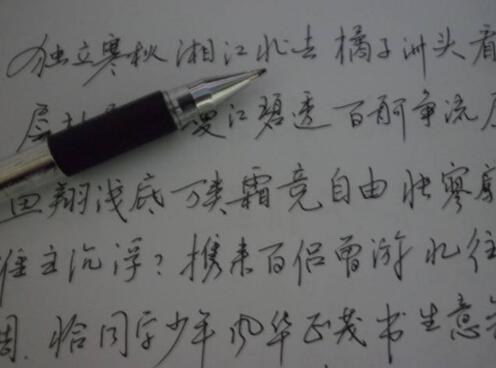 独立寒秋 湘江北去 橘子洲头 看
层 漫江碧透 百舸争流
翔浅底 万类霜竞自由 怅寥廓
谁主沉浮?携来百侣曾游 忆往
稠.恰同学少年 风华正茂 书生意气